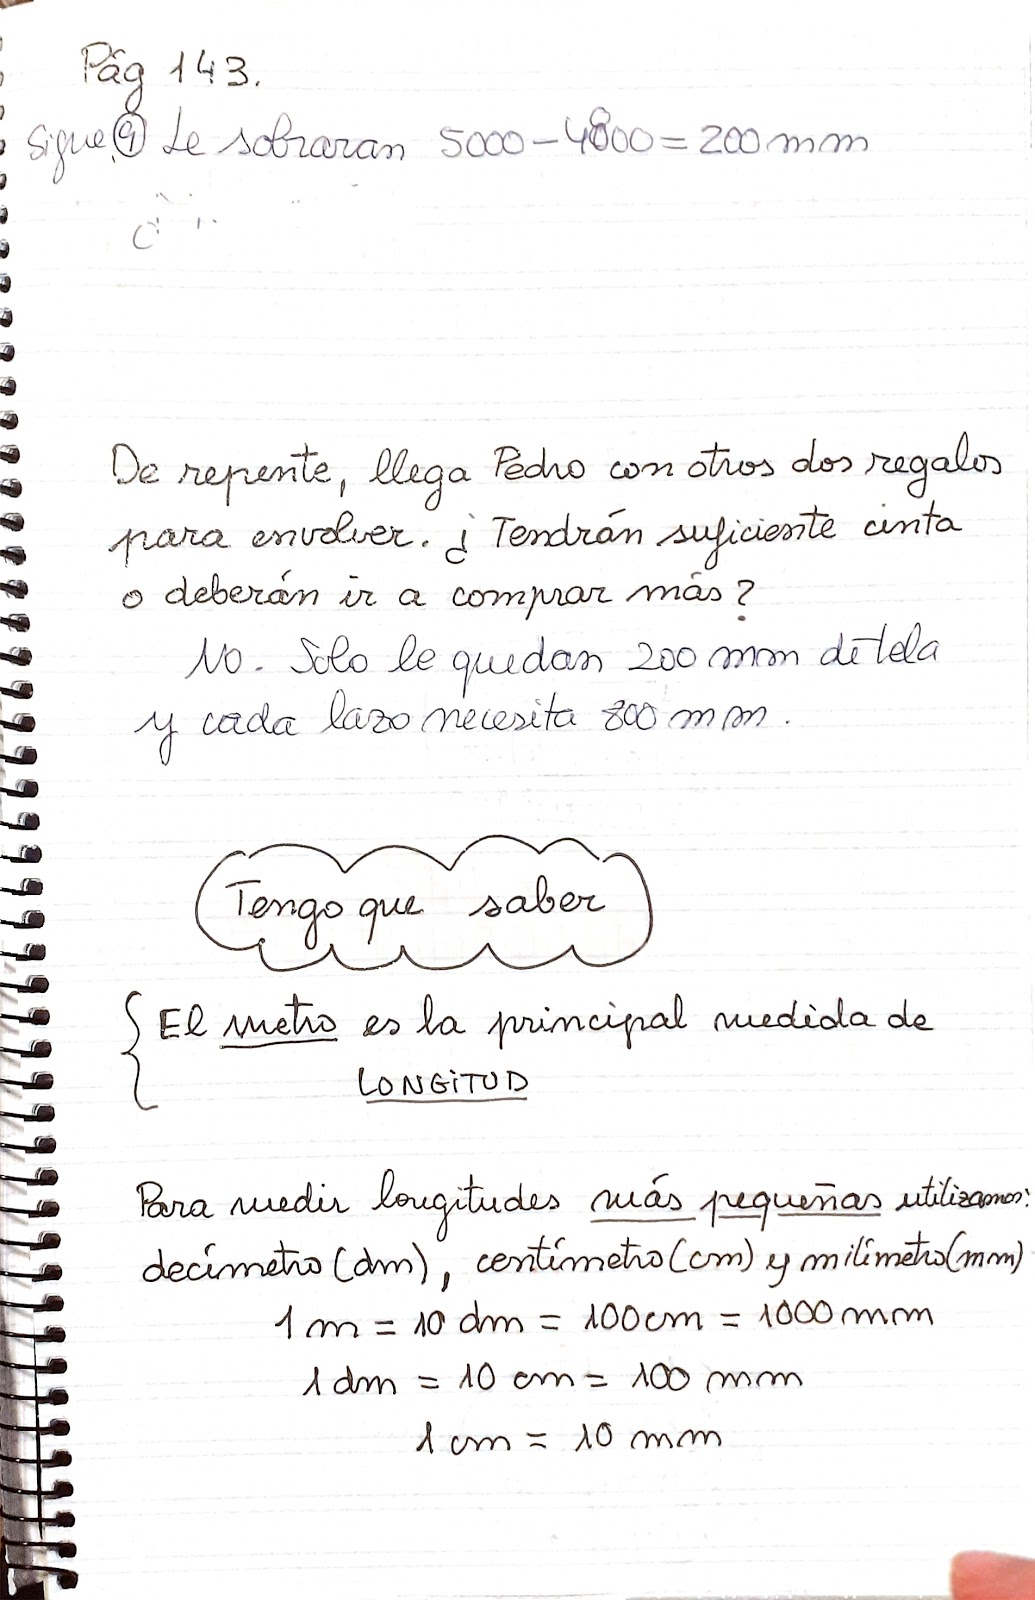 Pág 143.
Sigue 9 Le sobraran 5000-4800=200mm
De repente, llega Pedro con otros dos regalos
para envolver. ¿Tendrán suficiente cinta
o deberán ir a comprar más?
No. Solo le quedan 200 mm de tela
y cada lazo necesita 800 mm.
Tengo que saber
El metro es la principal medida de
LONGITUD
Para medir longitudes más pequeñas utilizamos:
decímetro (dm), centímetro (cm) y milímetro (mm)
1 m = 10 dm = 100 cm = 1000 mm
1 dm = 10 cm = 100 mm
1 cm = 10 mm